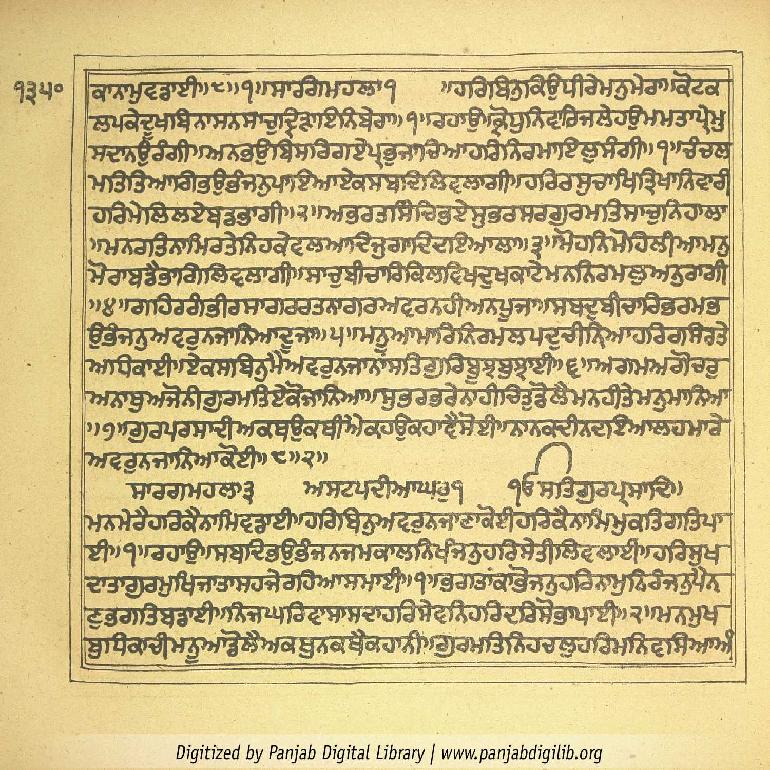 ੧੩੫੦
ਕਾਨਾਮੁਵਡਾਈ॥੮॥੧॥ਸਾਰਗਮਹਲਾ੧ ॥ਹਰਿਬਿਨੁਕਿਉਧੀਰੈਮਨੁਮੇਰਾ॥ਕੋਟਕ
ਲਪਕੇਦੂਖਬਿਨਾਸਨਸਾਚੁਦ੍ਰਿੜਾਇਨਿਬੇਰਾ॥੧॥ਰਹਾਉ॥ਕ੍ਰੋਧੁਨਿਵਾਰਿਜਲੇਹਉਮਮਤਾਪ੍ਰੇਮੁ
ਸਦਾਨਉਰੰਗੀ॥ਅਨਭਉਬਿਸਰਿਗਏਪ੍ਰਭੁਜਾਚਿਆਹਰਿਨਿਰਮਾਇਲੁਸੰਗੀ॥੧॥ਚੰਚਲ
ਮਤਿਤਿਆਗਿਭਉਭੰਜਨੁਪਾਇਆਏਕਸਬਦਿਲਿਵਲਾਗੀ॥ਹਰਿਰਸੁਚਾਖਿਤ੍ਰਿਖਾਨਿਵਾਰੀ
ਹਰਿਮੇਲਿਲਏਬਡਭਾਗੀ॥੨॥ਅਭਰਤਸਿੰਚਿਭਏਸੁਭਰਸਰਗੁਰਮਤਿਸਾਚੁਨਿਹਾਲਾ
॥ਮਨਰਤਿਨਾਮਿਰਤੇਨਿਹਕੇਵਲਆਦਿਜੁਗਾਦਿਦਇਆਲਾ॥੩॥ਮੋਹਨਿਮੋਹਿਲੀਆਮਨੁ
ਮੋਰਾਬਡੈਭਾਗਿਲਿਵਲਾਗੀ॥ਸਾਚੁਬੀਚਾਰਿਕਿਲਵਿਖਦੁਖਕਾਟੇਮਨਨਿਰਮਲੁਅਨੁਰਾਗੀ
॥੪॥ਗਹਿਰਗੰਭੀਰਸਾਗਰਰਤਨਾਗਰਅਵਰਨਹੀਅਨਪੂਜਾ॥ਸਬਦੁਬੀਚਾਰਿਭਰਮਭ
ਉਭੰਜਨੁਅਵਰੁਨਜਾਨਿਆਦੂਜਾ॥੫॥ਮਨੂਆਮਾਰਿਨਿਰਮਲਪਦੁਚੀਨਿਆਹਰਿਰਸਿਰਤੇ
ਅਧਿਕਾਈ॥ਏਕਸਬਿਨੁਮੈਅਵਰੁਨਜਾਨਾਸਤਿਗੁਰਿਬੂਝਬੁਝਾਈ॥੬॥ਅਗਮਅਗੋਚਰੁ
ਅਨਾਥੁਅਜੋਨੀਗੁਰਮਤਿਏਕੋਜਾਨਿਆ॥ਸੁਭਰਭਰੇਨਾਹੀਚਿਤੁਡੋਲੈਮਨਹੀਤੇਮਨੁਮਾਨਿਆ
॥੭॥ਗੁਰਪਰਸਾਦੀਅਕਥਉਕਥੀਐਕਹਉਕਹਾਵੈਸੋਈ॥ਨਾਨਕਦੀਨਦਇਆਲਹਮਾਰੇ
ਅਵਰੁਨਜਾਨਿਆਕੋਈ॥੮॥੨॥
ਸਾਰਗਮਹਲਾ੩ ਅਸਟਪਦੀਆਘਰੁ੧ ੴਸਤਿਗੁਰਪ੍ਰਸਾਦਿ॥
ਮਨਮੇਰੇਹਰਿਕੈਨਾਮਿਵਡਾਈ॥ਹਰਿਬਿਨੁਅਵਰੁਨਜਾਣਾਕੋਈਹਰਿਕੈਨਾਮਿਮੁਕਤਿਗਤਿਪਾ
ਈ॥੧॥ਰਹਾਉ॥ਸਬਦਿਭਉਭੰਜਨਜਮਕਾਲਨਿਖੰਜਨੁਹਰਿਸੇਤੀਲਿਵਲਾਈ॥ਹਰਿਸੁਖ
ਦਾਤਾਗੁਰਮੁਖਿਜਾਤਾਸਹਜੇਰਹਿਆਸਮਾਈ॥੧॥ਭਗਤਾਂਕਾਭੋਜਨੁਹਰਿਨਾਮੁਨਿਰੰਜਨੁਪੈਨ
ਣੁਭਗਤਿਬਡਾਈ॥ਨਿਜਘਰਿਵਾਸਾਸਦਾਹਰਿਸੇਵਨਿਹਰਿਦਰਿਸੋਭਾਪਾਈ॥੨॥ਮਨਮੁਖ
ਬੁਧਿਕਾਚੀਮਨੂਆਡੋਲੈਅਕਥੁਨਕਥੈਕਹਾਨੀ॥ਗੁਰਮਤਿਨਿਹਚਲੁਹਰਿਮਨਿਵਸਿਆਅੰ
Digitized by Panjab Digital Library | www.panjabdigilib.org